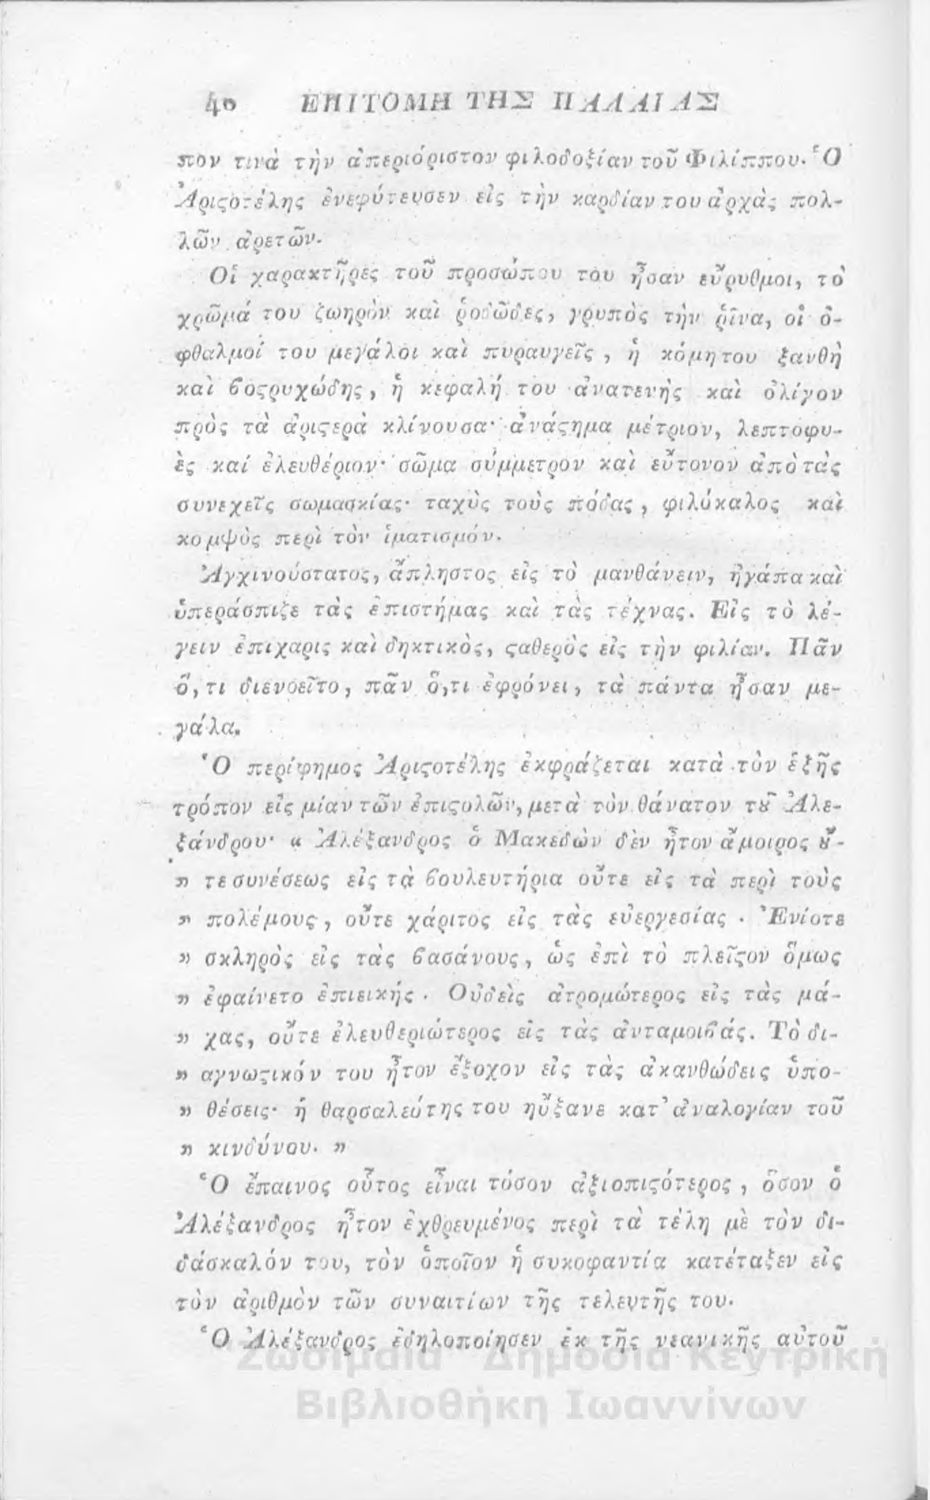 40 ΕΠΙΤΟΜΗ ΤΗΣ ΠΑΛΑΙΑΣ
πον τινὰ τὴν ἀπεριόριστον φιλοδοξίαν τοῦ Φιλίππου. Ὁ
Ἀριςοτέλης ἐνεφύτευσεν εἰς τὴν καρδίαν του ἀρχὰς πολ-
λῶν ἀρετῶν.
Οἱ χαρακτῆρες τοῦ προσώπου του ἦσαν εὔρυθμοι, τὸ
χρῶμά του ζωηρὸν καὶ ῥοδῶδες, γρυπὸς τὴν ῥῖνα, οἱ ὀ-
φθαλμοί του μεγάλοι καὶ πυραυγεῖς, ἡ κόμη του ξανθὴ
καὶ ϐοςρυχώδης, ἡ κεφαλή του ἀνατενὴς καὶ ὀλίγον
πρὸς τὰ ἀριςερὰ κλίνουσα· ἀνάςημα μέτριον, λεπτοφυ-
ὲς καί ἐλευθέριον· σῶμα σύμμετρον καὶ εὔτονον ἀπὸ τὰς
συνεχεῖς σωμασκίας· ταχὺς τοὺς πόδας, φιλόκαλος καὶ
κομψὸς περὶ τὸν ἱματισμόν.
Ἀγχινούστατος, ἄπληστος εἰς τὸ μανθάνειν, ἠγάπα καὶ
ὑπεράσπιζε τὰς ἐπιστήμας καὶ τὰς τέχνας. Εἰς τὸ λέ-
γειν ἐπιχαρις καὶ δηκτικὸς, ςαθερὸς εἰς τὴν φιλίαν. Πᾶν
ὅ,τι διενοεῖτο, πᾶν ὅ,τι ἐφρόνει, τὰ πάντα ἦσαν με-
γάλα.
Ὁ περίφημος Ἀριςοτέλης ἐκφράζεται κατὰ τὸν ἑξῆς
τρόπον εἰς μίαν τῶν ἐπιςολῶν, μετὰ τὸν θάνατον τȣ͂ Ἀλε-
ξάνδρου· « Ἀλέξανδρος ὁ Μακεδὼν δὲν ἦτον ἄμοιρος ȣ̓́-
» τε συνέσεως εἰς τὰ ϐουλευτήρια οὔτε εἰς τὰ περὶ τοὺς
» πολέμους, οὔτε χάριτος εἰς τὰς εὐεργεσίας . Ἐνίοτε
» σκληρὸς εἰς τὰς ϐασάνους, ὡς ἐπὶ τὸ πλεῖςον ὅμως
» ἐφαίνετο ἐπιεικής . Οὐδεὶς ἀτρομώτερος εἰς τὰς μά-
» χας, οὔτε ἐλευθεριώτερος εἰς τὰς ἀνταμοιϐάς. Τὸ δι-
» αγνωςικόν του ἦτον ἔξοχον εἰς τὰς ἀκανθώδεις ὑπο-
» θέσεις· ἡ θαρσαλεότης του ηὔξανε κατ' ἀναλογίαν τοῦ
» κινδύνου. »
Ὁ ἔπαινος οὗτος εἶναι τόσον ἀξιοπιςότερος, ὅσον ὁ
Ἀλέξανδρος ἦτον ἐχθρευμένος περὶ τὰ τέλη μὲ τὸν δι-
δάσκαλόν του, τὸν ὁποῖον ἡ συκοφαντία κατέταξεν εἰς
τὸν ἀριθμὸν τῶν συναιτίων τῆς τελευτῆς του.
Ὁ Ἀλέξανδρος ἐδηλοποίησεν ἐκ τῆς νεανικῆς αὐτοῦ
Ζωσιμαία Δημόσια Κεντρική
Βιβλιοθήκη Ιωαννίνων